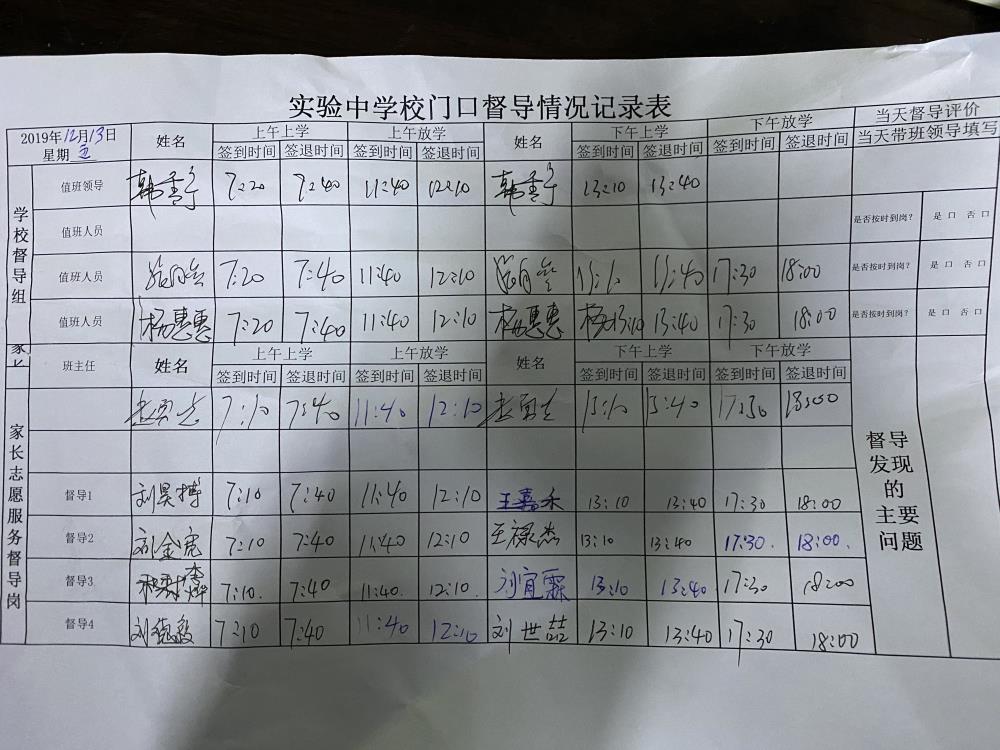 实验中学校门口督导情况记录表
2019年12月13日 星期五 姓名 上午上学 上午放学 姓名 下午上学 下午放学 当天督导评价
签到时间 签退时间 签到时间 签退时间 签到时间 签退时间 签到时间 签退时间 当天带班领导填写
学校督导组
值班领导 7:20 7:40 11:40 12:10 13:10 13:40
值班人员 是否按时到岗? 是 口 否 口
值班人员 7:20 7:40 11:40 12:10 13:10 13:40 17:30 18:00 是否按时到岗? 是 口 否 口
值班人员 杨惠惠 7:20 7:40 11:40 12:10 杨惠惠 13:10 13:40 17:30 18:00 是否按时到岗? 是 口 否 口
家长
班主任 姓名 上午上学 上午放学 姓名 下午上学 下午放学
签到时间 签退时间 签到时间 签退时间 签到时间 签退时间 签到时间 签退时间
7:10 7:40 11:40 12:10 13:10 13:40 17:30 18:00
家长志愿服务督导岗
督导1 刘昊搏 7:10 7:40 11:40 12:10 王嘉禾 13:10 13:40 17:30 18:00
督导2 刘金虎 7:10 7:40 11:40 12:10 王禄杰 13:10 13:40 17:30. 18:00.
督导3 7:10. 7:40 11:40. 12:10. 刘宜霖 13:10 13:40 17:30 18:00
督导4 7:10 7:40 11:40 12:10 刘世喆 13:10 13:40 17:30 18:00
督导
发现
的
主要
问题